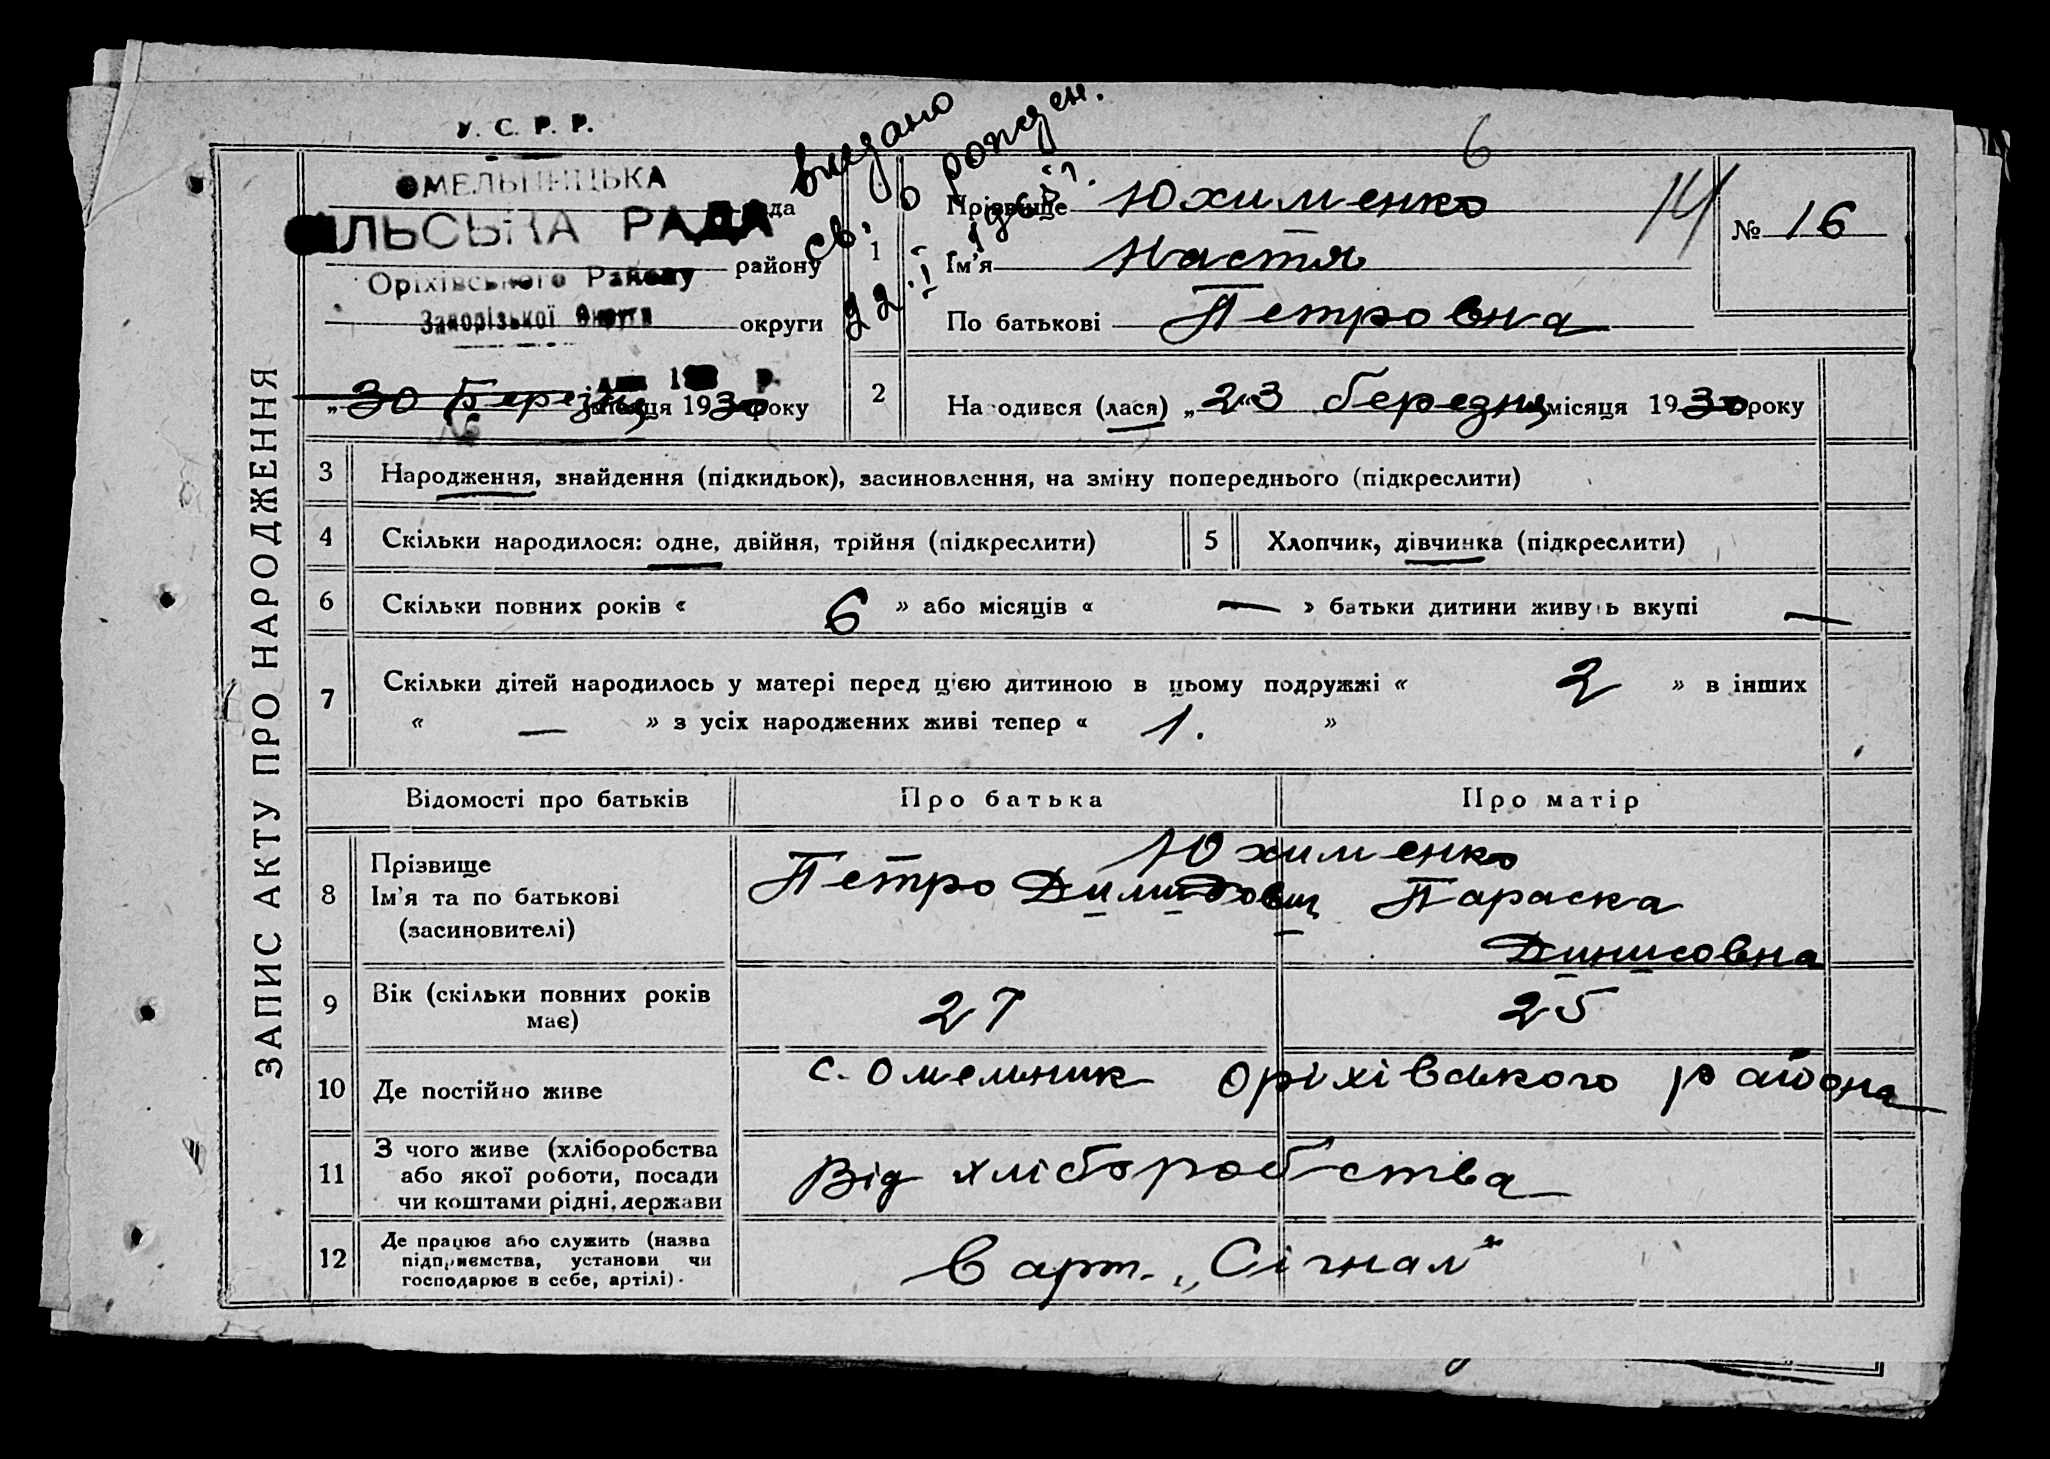 У. С. Р. Р.
ОМЕЛЬНИЦЬКА
СІЛЬСЬКА РАДА
Оріхівського Району району
Запорізької Округи округи
"30 Березня місяця 1930 року
видано
св. о рожден.
6
14
№ 16
1
Прізвище Юхименко
Ім'я Настя
По батькові Петровна
2
Народився (лася) "23 березня місяця 1930 року
ЗАПИС АКТУ ПРО НАРОДЖЕННЯ
3 Народження, знайдення (підкидьок), засиновлення, на зміну попереднього (підкреслити)
4 Скільки народилося: одне, двійня, трійня (підкреслити) 5 Хлопчик, дівчинка (підкреслити)
6 Скільки повних років « 6 » або місяців « — » батьки дитини живуть вкупі —
7 Скільки дітей народилось у матері перед цією дитиною в цьому подружжі « 2 » в інших
« — » з усіх народжених живі тепер « 1. »
Відомості про батьків Про батька Про матір
8 Прізвище
Ім'я та по батькові
(засиновителі)
Юхименко
Петро Димидович Параска
Динисовна
9 Вік (скільки повних років
має) 27 25
10 Де постійно живе с. Омельник Оріхівського района
11 З чого живе (хліборобства
або якої роботи, посади
чи коштами рідні, держави
Від хліборобства
12 Де працює або служить (назва
підприємства, установи чи
господарює в себе, артілі).
в арт. „Сігнал"